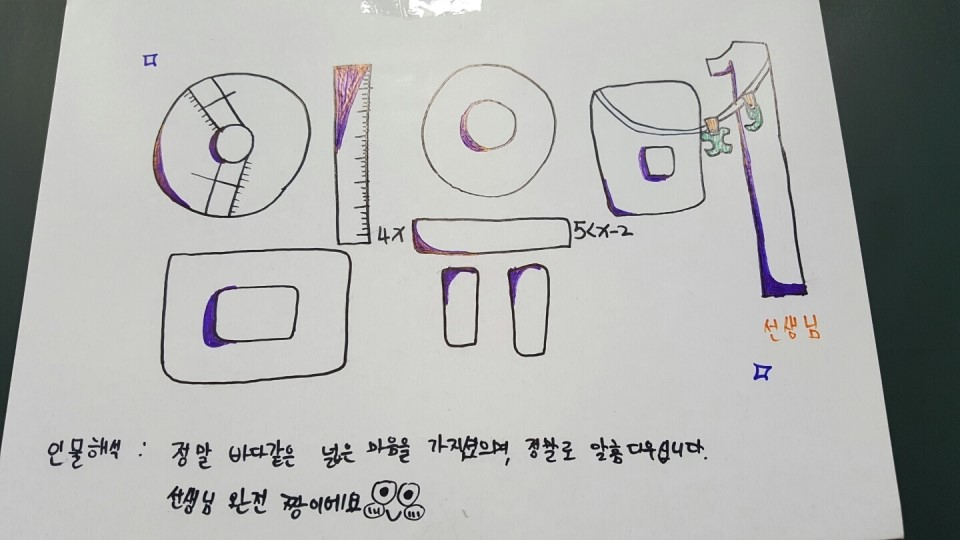 임유미
4x 5<x-2
선생님
인물해석 : 정말 바다같은 넓은 마음을 가지셨으며, 정말로 알흠다우십니다.
선생님 완전 짱이에요